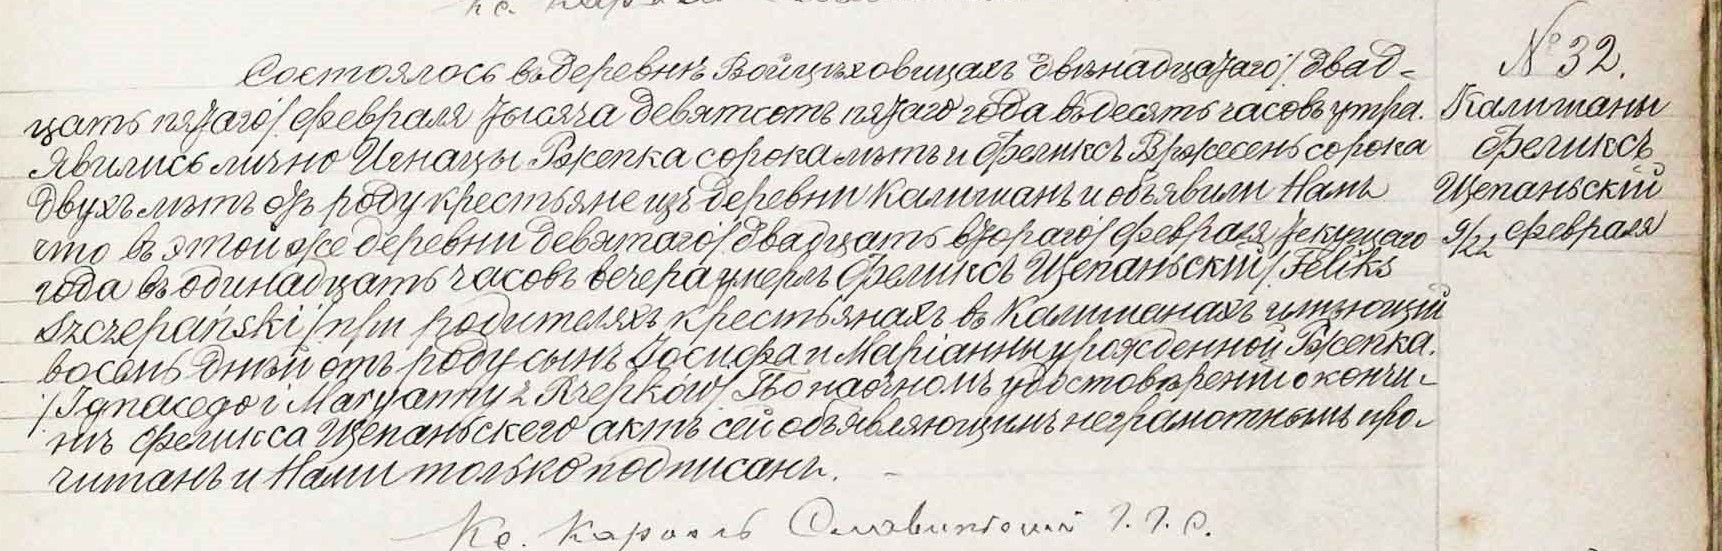 Состоялось въ деревнѣ Войцѣховицахъ двѣнадцатаго /двад-
цать пятаго/ февраля тысяча девятсотъ пятаго года въ десять часовъ утра.
Явились лично Игнацы Ржепка сорока лѣтъ и Феликсъ Вржесень сорока
двухъ лѣтъ отъ роду крестьяне изъ деревни Калишанъ и объявили Намъ
что въ этой же деревни девятаго /двадцать втораго/ февраля текущаго
года въ одинадцать часовъ вечера умерлъ Феликсъ Щепаньскій /Feliks
Szczepański/ при родителяхъ крестьянахъ в Калишанахъ имѣющій
восемь дней отъ роду сынъ Іосифа и Маріанны урожденной Ржепка.
/Ignacego i Maryanny z Rzepków/ По наочномъ удостовѣреніи о кончи-
нѣ Феликса Щепаньскего актъ сей объявляющимъ неграмотнымъ про-
читанъ и Нами только подписанъ.
Кс. Кароль
№ 32.
Калишаны
Феликсъ
Щепаньскій
9/22 февраля